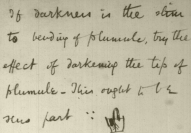 If darkness is the stim
to bending of plumule, try the
effect of darkening the tip of
plumule – This ought to be
sens part ∴